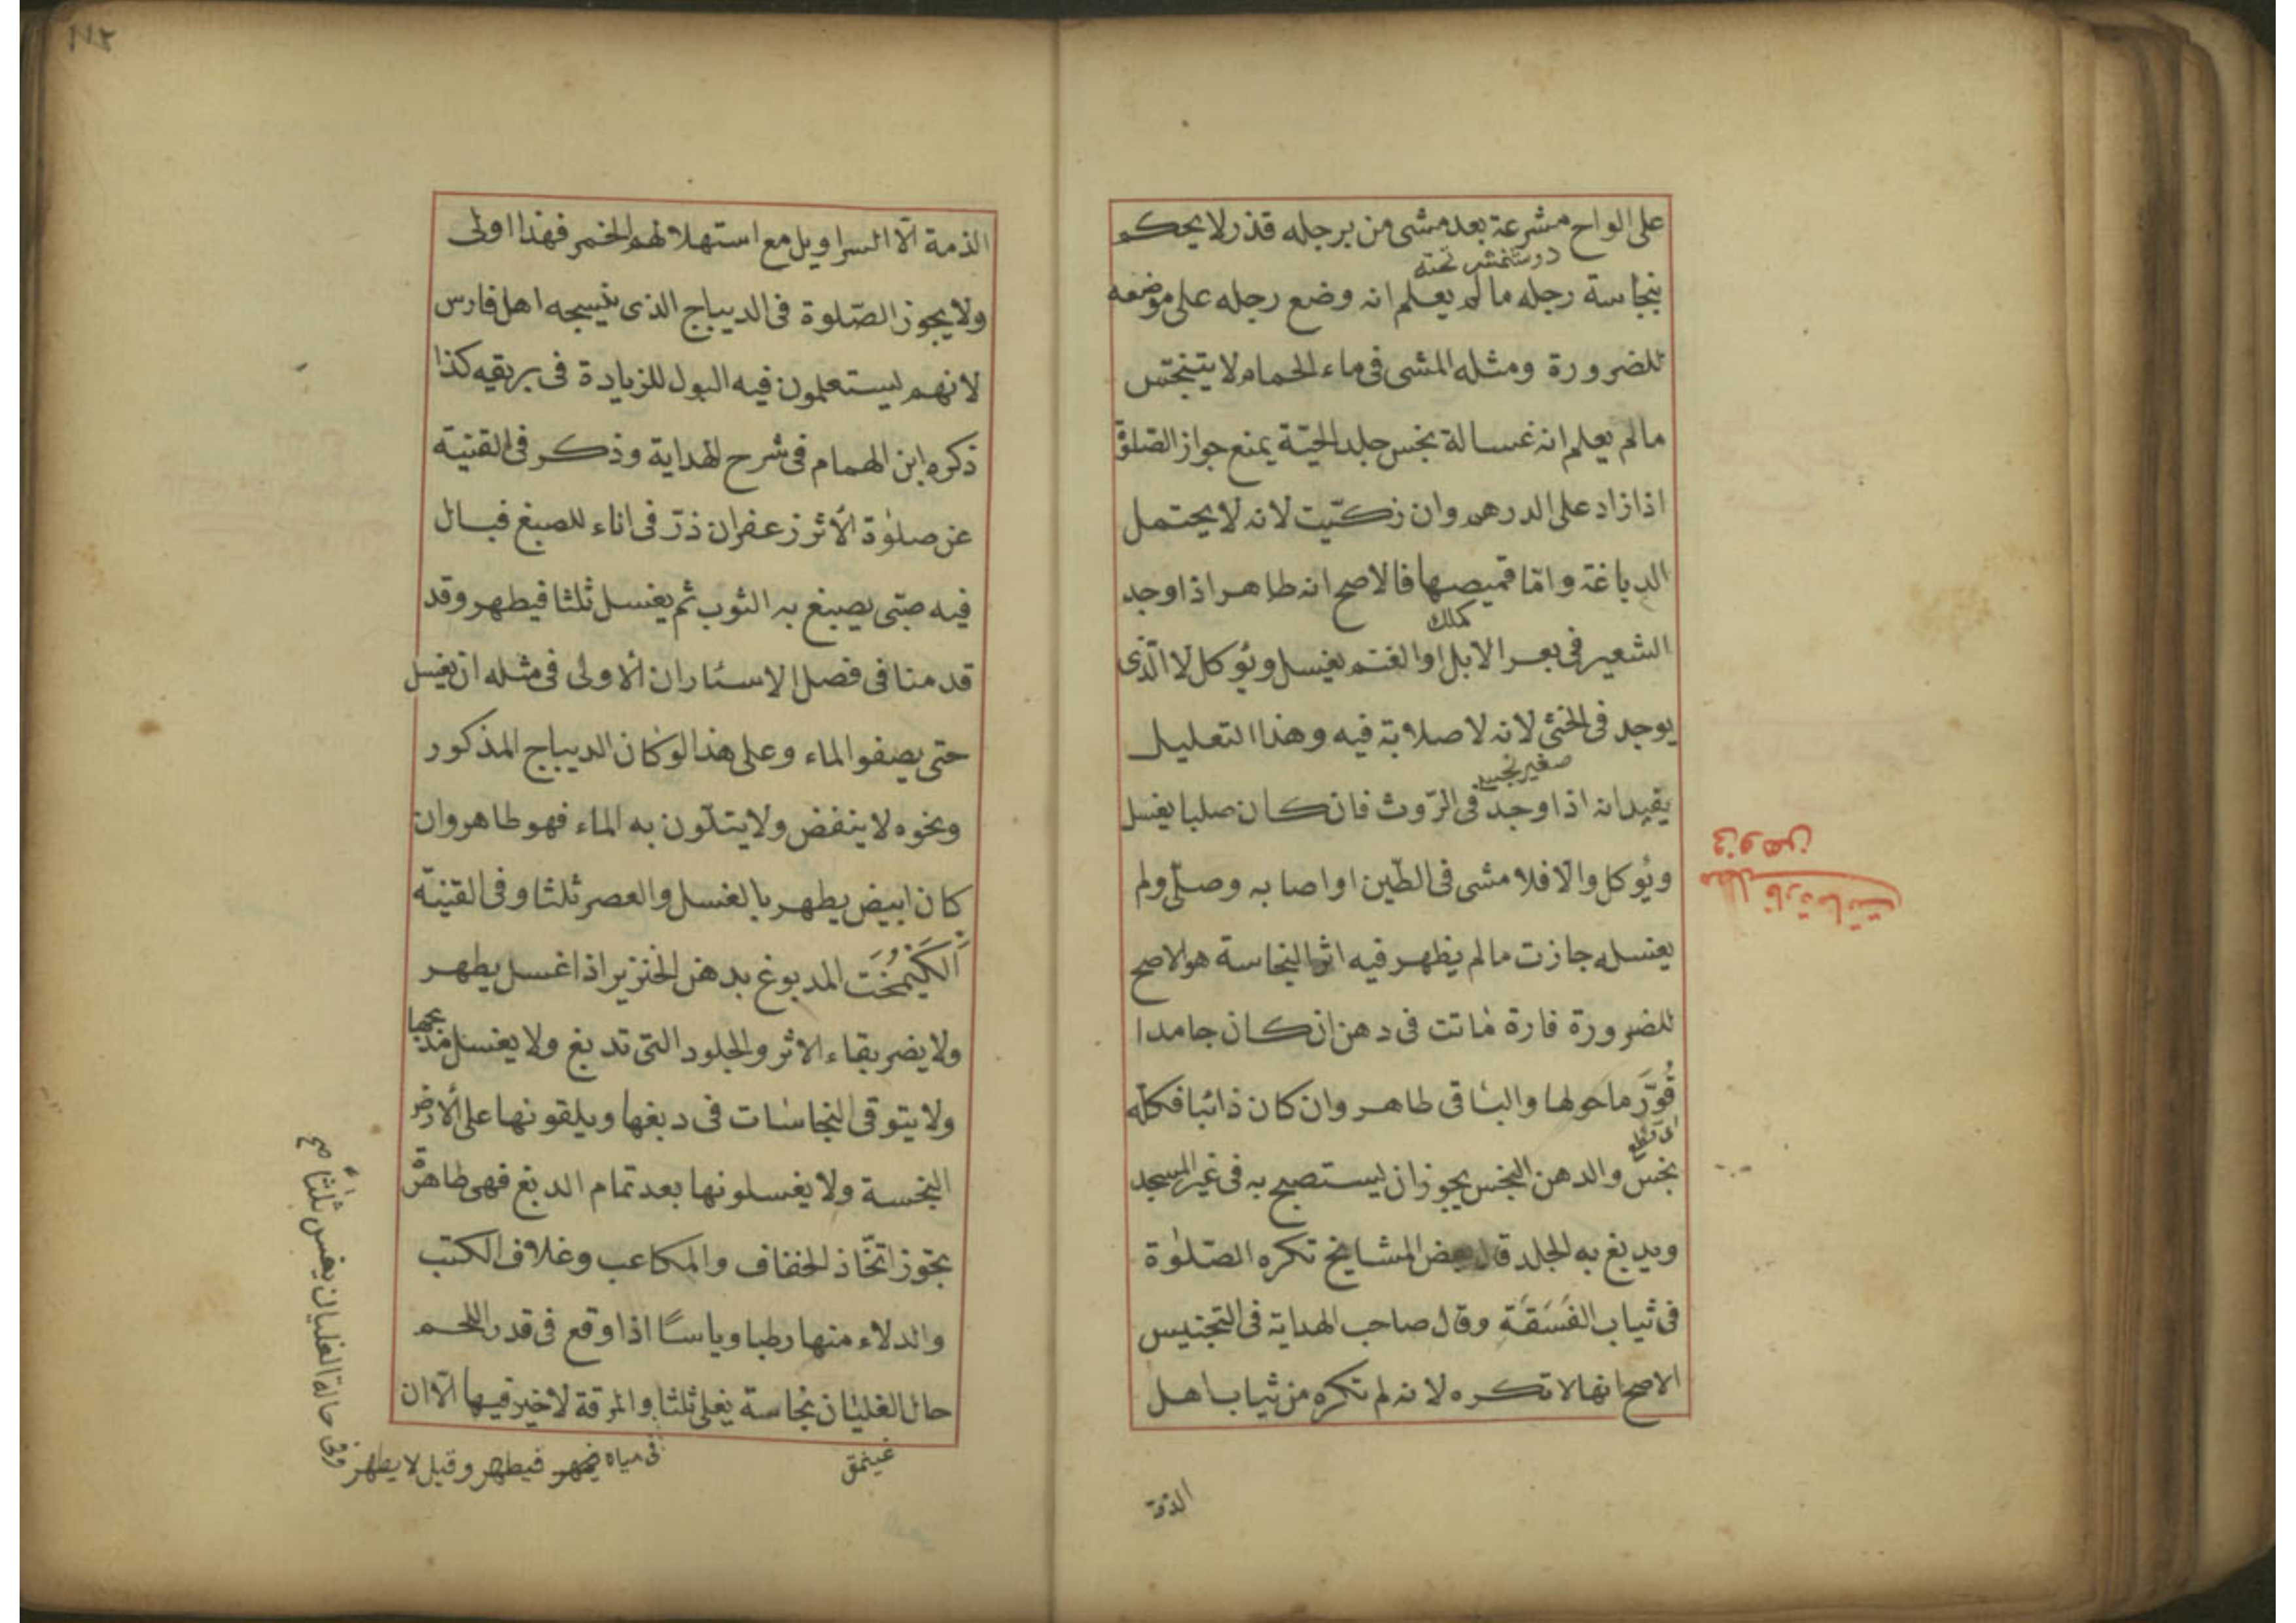 على الواح مشرعة بعد مشى من برجله قذر لا يحكم
تخته
بنجاسة رجله مالم يعلم انه وضع رجله على موضعه
للضرورة ومثله المشى فى ماء الحمام لا يتنجس
مالم يعلم انه غسالة نجس جلد الحيّة يمنع جواز الصّلوة
اذا زاد على الدرهم وان ذكّيت لانه لا يحتمل
الدباغة وامّا قميصها فالاصح انه طاهر اذا وجد
الشعير فى بعر الابل او الغنم يغسل ويؤكل لا الّذى
يوجد فى الخثى لانه لا صلابة فيه وهذا التعليل
يفيد انه اذا وجد فى الرّوث فان كان صلبا يغسل
ويؤكل والّا فلا مشى فى الطّين او اصابه وصلّى ولم
يغسله جازت مالم يظهر فيه اثر النجاسة هو الاصح
للضرورة فارة ماتت فى دهن ان كان جامدا
قُوّرَ ماحولها والباقى طاهر وان كان ذائبا فكلّه
اى قطع
نجس والدهن النجس يجوز ان يستصبح به فى غير المسجد
ويدبغ به الجلد قال بعض المشايخ تكره الصّلوة
فى ثياب الفَسَقَة وقال صاحب الهداية فى التجنيس
الاصح انها لا تكره لانه لم تكره من ثياب اهل
الذمة
مطلب فارة ماتت
فى دهن
١١٢
الذمة الّا السراويل مع استهلالهم الخمر فهذا اولى
ولا يجوز الصّلوة فى الديباج الذى ينسجه اهل فارس
لانهم يستعلمون فيه البول للزيادة فى بريقه كذا
ذكره ابن الهمام فى شرح الهداية وذكر فى القنية
عن صلوة الأثر زعفران ذرّ فى اناء للصبغ فبال
فيه صبّى يصبغ به الثوب ثم يغسل ثلثا فيطهر وقد
قدمنا فى فصل الاستار ان الاولى فى مثله ان يغسل
حتى يصفو الماء وعلى هذا لو كان الديباج المذكور
ونحوه لا ينفض ولا يتلّون به الماء فهو طاهر وان
كان ابيض يطهر بالغسل والعصر ثلثا وفى القنية
اَلكَيْمُخَت المدبوغ بدهن الخنزير اذا غسل يطهر
ولا يضر بقاء الاثر والجلود التى تدبغ ولا يغسل مذبحها
ولا يتوقى النجاسات فى دبغها ويلقونها على الارض
النجسة ولا يغسلونها بعد تمام الدبغ فهى طاهرة
يجوز اتّخاذ الخفاف والمكاعب وغلاف الكتب
والدلاء منها رطبا وياسًا اذا وقع فى قدر اللحم
حال الغليان نجاسة يغلى ثلثا والمرقة لا خير فيها الّا ان
فى مياه فيطهر وقيل لا يطهر
وفى حالة الغليان يغس ثلثا صح